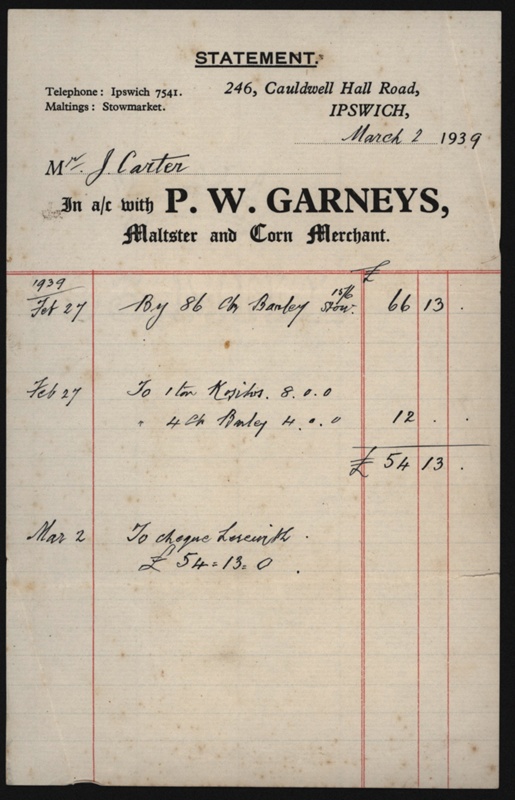 STATEMENT.
Telephone: Ipswich 7541.
Maltings: Stowmarket.
246, Cauldwell Hall Road,
IPSWICH,
March 2 1939
Mr. J. Carter
In a/c with P. W. GARNEYS,
Maltster and Corn Merchant.
£
1939
Feb 27 By 86 Ch Barley 15/6 Stow. 66 13 .
Feb 27 To 1 ton Kositos. 8.0.0
" 4 Ch Barley 4.0.0 12 . .
£ 54 13 .
Mar 2 To cheque herewith.
£ 54=13=0.